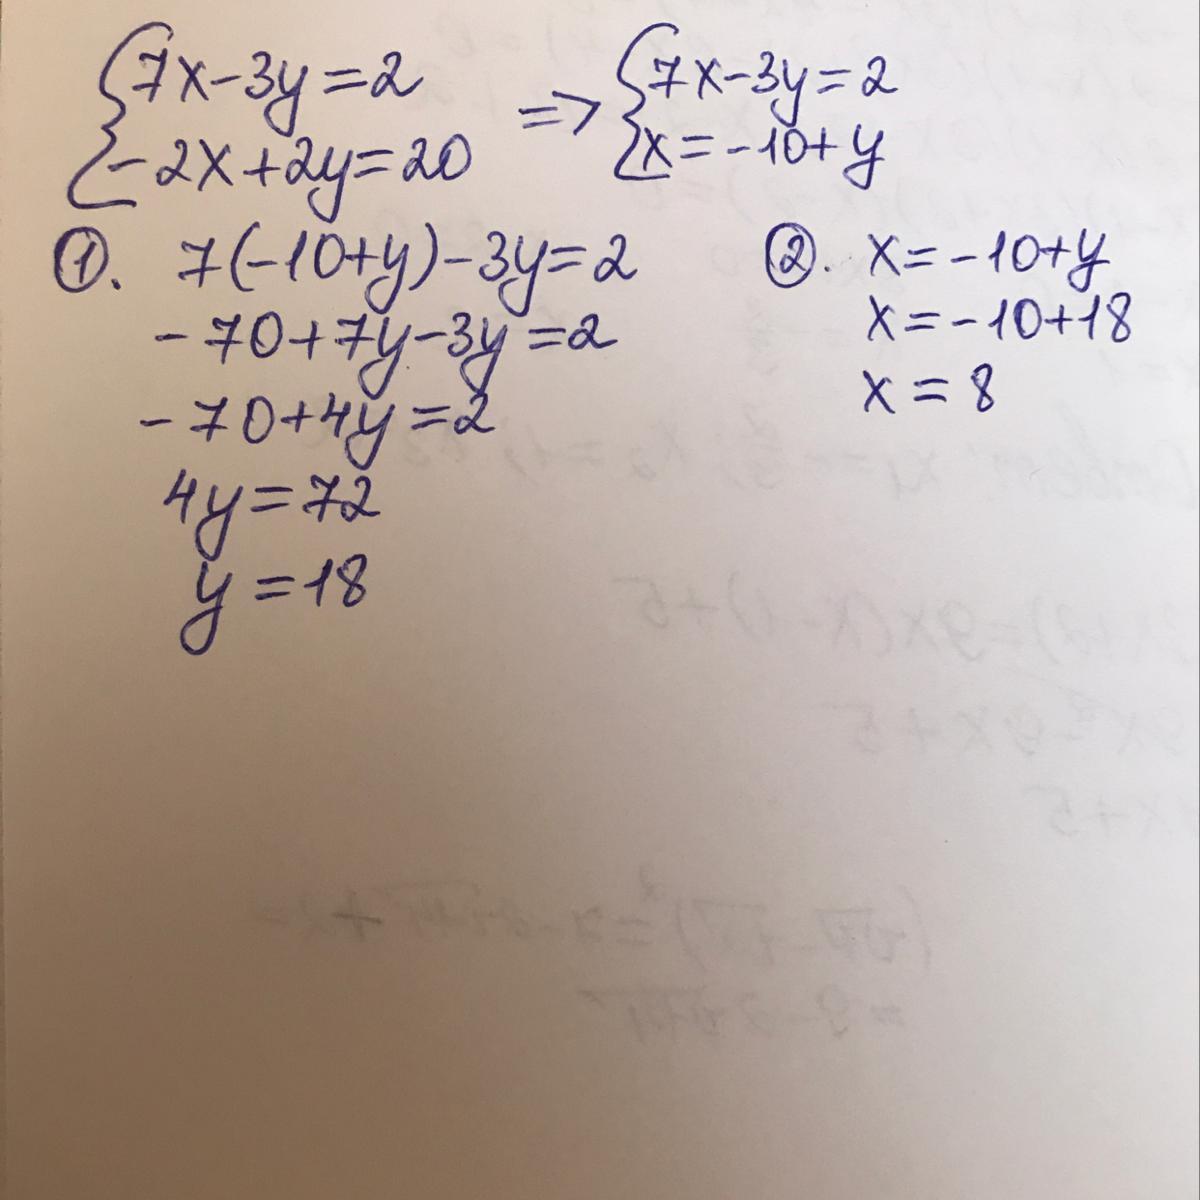 7x-3y=2 => 7x-3y=2
-2x+2y=20 x=-10+y
1. 7(-10+y)-3y=2
-70+7y-3y=2
-70+4y=2
4y=72
y=18
2. x=-10+y
x=-10+18
x=8